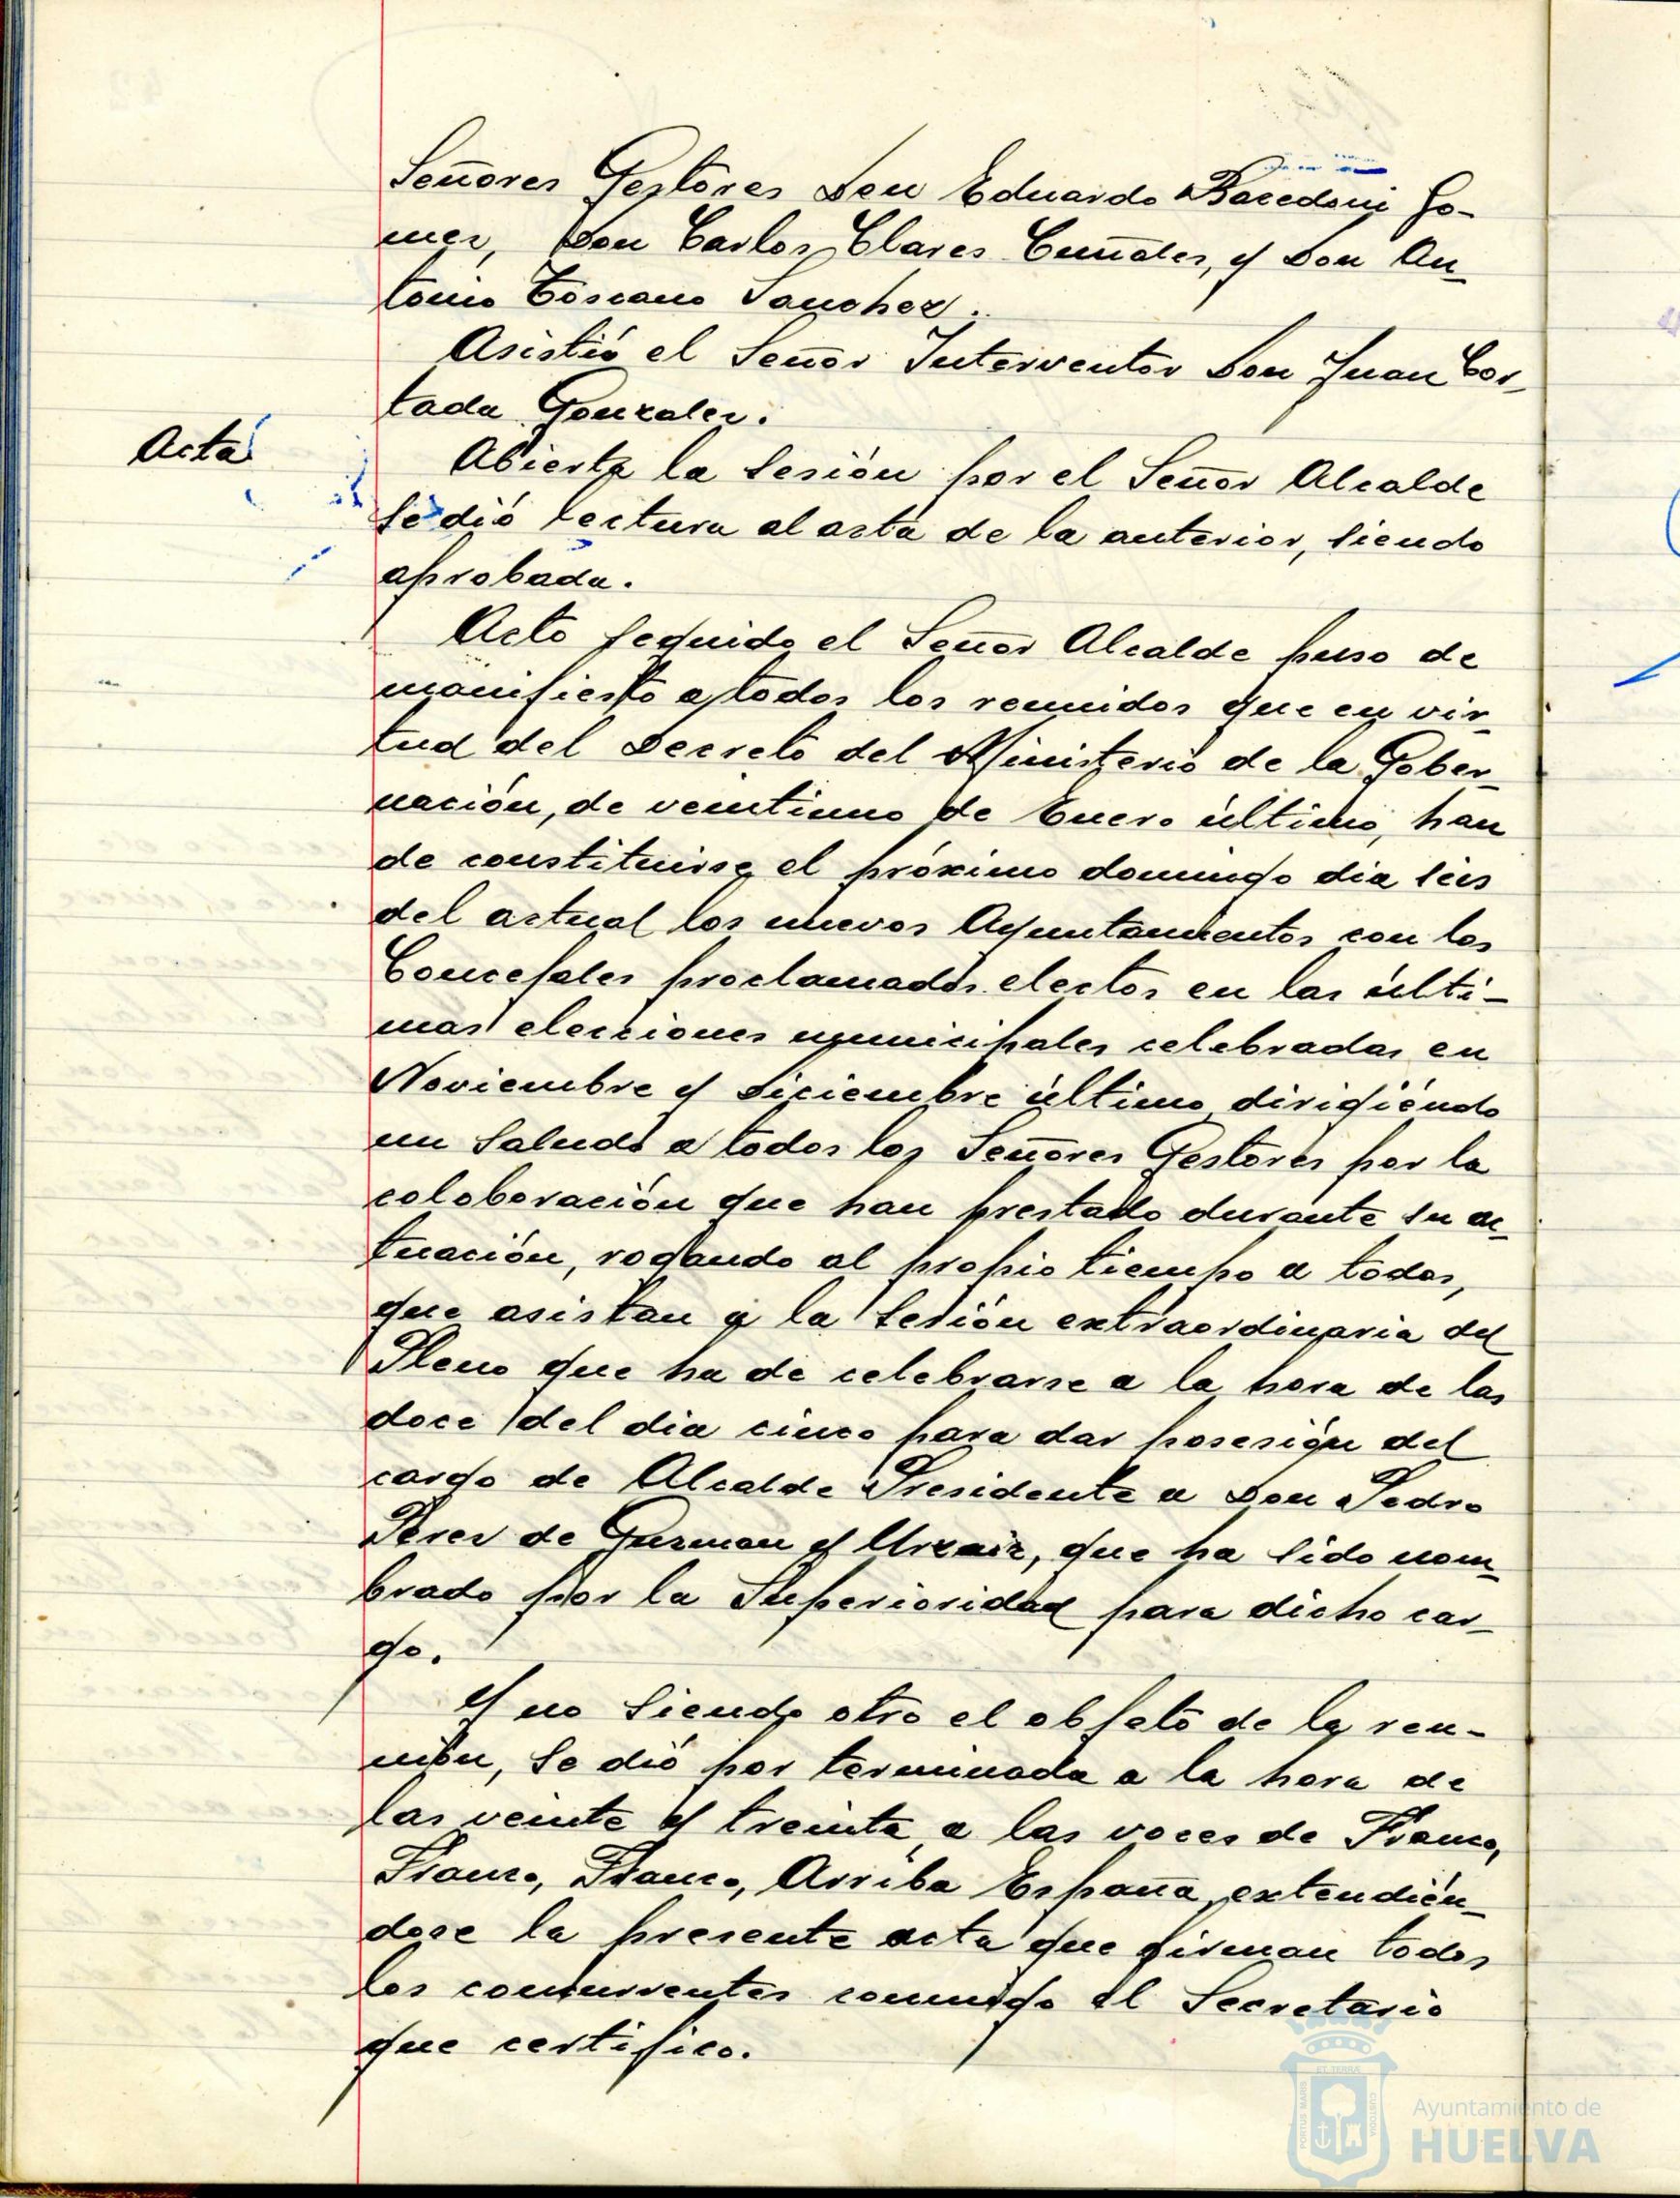 Señores Gestores Don Eduardo Bacedoni Go-
mez, Don Carlos Clares Cuñales, y Don An-
tonio Toscano Sanchez.
Asistió el Señor Interventor Don Juan Cor-
tada Gonzalez.
Acta
Abierta la sesión por el Señor Alcalde
se dió lectura al acta de la anterior, siendo
aprobada.
Acto seguido el Señor Alcalde puso de
manifiesto a todos los reunidos que en vir-
tud del Decreto del Ministerio de la Gober-
nación, de veintiuno de Enero último, han
de constituirse el próximo domingo dia seis
del actual los nuevos Ayuntamientos con los
Concejales proclamados electos en las últi-
mas elecciones municipales celebradas en
Noviembre y Diciembre último dirigiéndo
un saludo a todos los Señores Gestores por la
coloboración que han prestado durante su ac-
tuación, rogando al propio tiempo a todos,
que asistan a la sesión extraordinaria del
Pleno que ha de celebrarse a la hora de las
doce del dia cinco para dar posesión del
cargo de Alcalde Presidente a Don Pedro
Perez de Guzman y Urzaiz, que ha sido nom-
brado por la Superioridad para dicho car-
go.
Y no siendo otro el objeto de la reu-
nión, se dió por terminada a la hora de
las veinte y treinta a las voces de Franco,
Franco, Franco, Arriba España, extendién-
dose la presente acta que firman todos
los concurrentes conmigo el Secretario
que certifico.
Ayuntamiento de
HUELVA